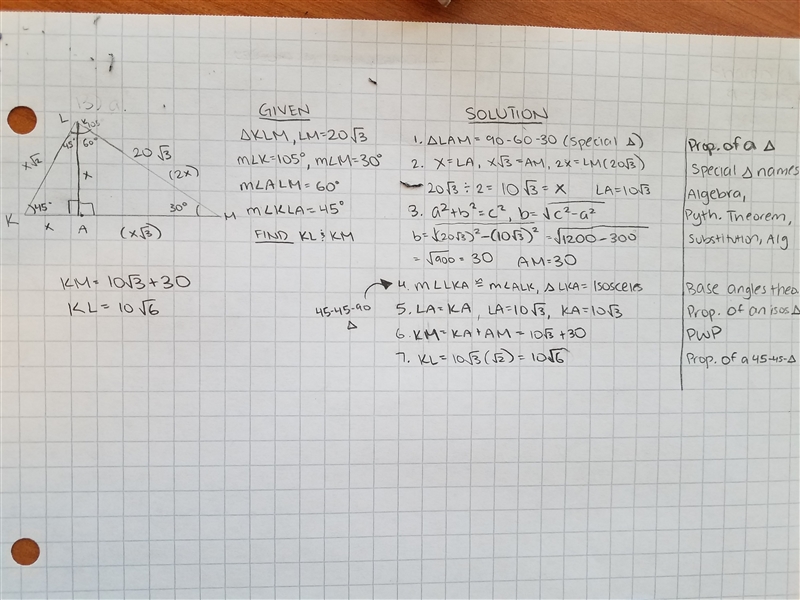 L
K105°
45° 60°
20√3
x√2
x
(2x)
K 45° 30° M
x A (x√3)
KM = 10√3 + 30
KL = 10√6
GIVEN
△KLM, LM=20√3
m∠K=105°, m∠M=30°
m∠ALM = 60°
m∠KLA=45°
FIND KL & KM
45-45-90
△
SOLUTION
1. △LAM = 90-60-30 (special △)
2. X=LA, x√3=AM, 2x=LM(20√3)
20√3 ÷ 2 = 10√3 = x LA=10√3
3. a²+b²=c², b=√c²-a²
b=√(20√3)²-(10√3)² = √1200-300
= √900 = 30 AM=30
4. m∠LKA ≅ m∠ALK, △LKA = Isosceles
5. LA=KA, LA=10√3, KA=10√3
6. KM=KA+AM=10√3+30
7. KL=10√3(√2)=10√6
Prop. of a △
Special △ names
Algebra,
Pyth. Theorem,
Substitution, Alg
Base angles theo
Prop. of an isos △
PWP
Prop. of a 45-45-△